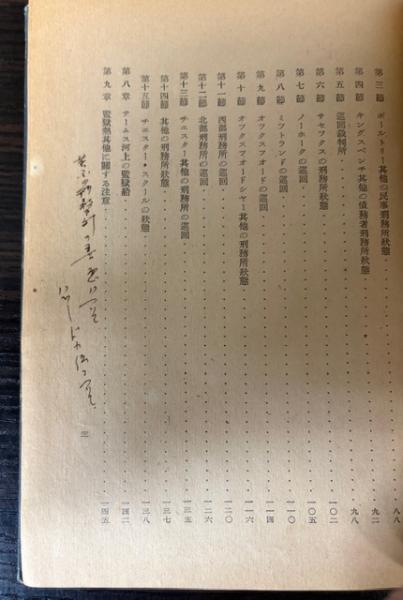 第三節 ポールトリー其他の民事刑務所狀態 八八
第四節 キングスベンチ其他の債務者刑務所狀態 九二
第五節 巡回裁判所 九八
第六節 サセツクスの刑務所狀態 一〇二
第七節 ノーホークの巡回 一〇五
第八節 ミツトランドの巡回 一一〇
第九節 オツクスフオードの巡回 一一四
第十節 オツクスフオードシヤー其他の刑務所狀態 一一六
第十一節 西部刑務所の巡回 一二〇
第十二節 北部刑務所の巡回 一二六
第十三節 チエスター其他の刑務所の巡回 一三五
第十四節 其他の刑務所狀態 一三七
第十五節 チエスター・スクールの狀態 一三八
第八章 テームス河上の監獄船 一四二
第九章 監獄熱其他に關する注意 一四五
三